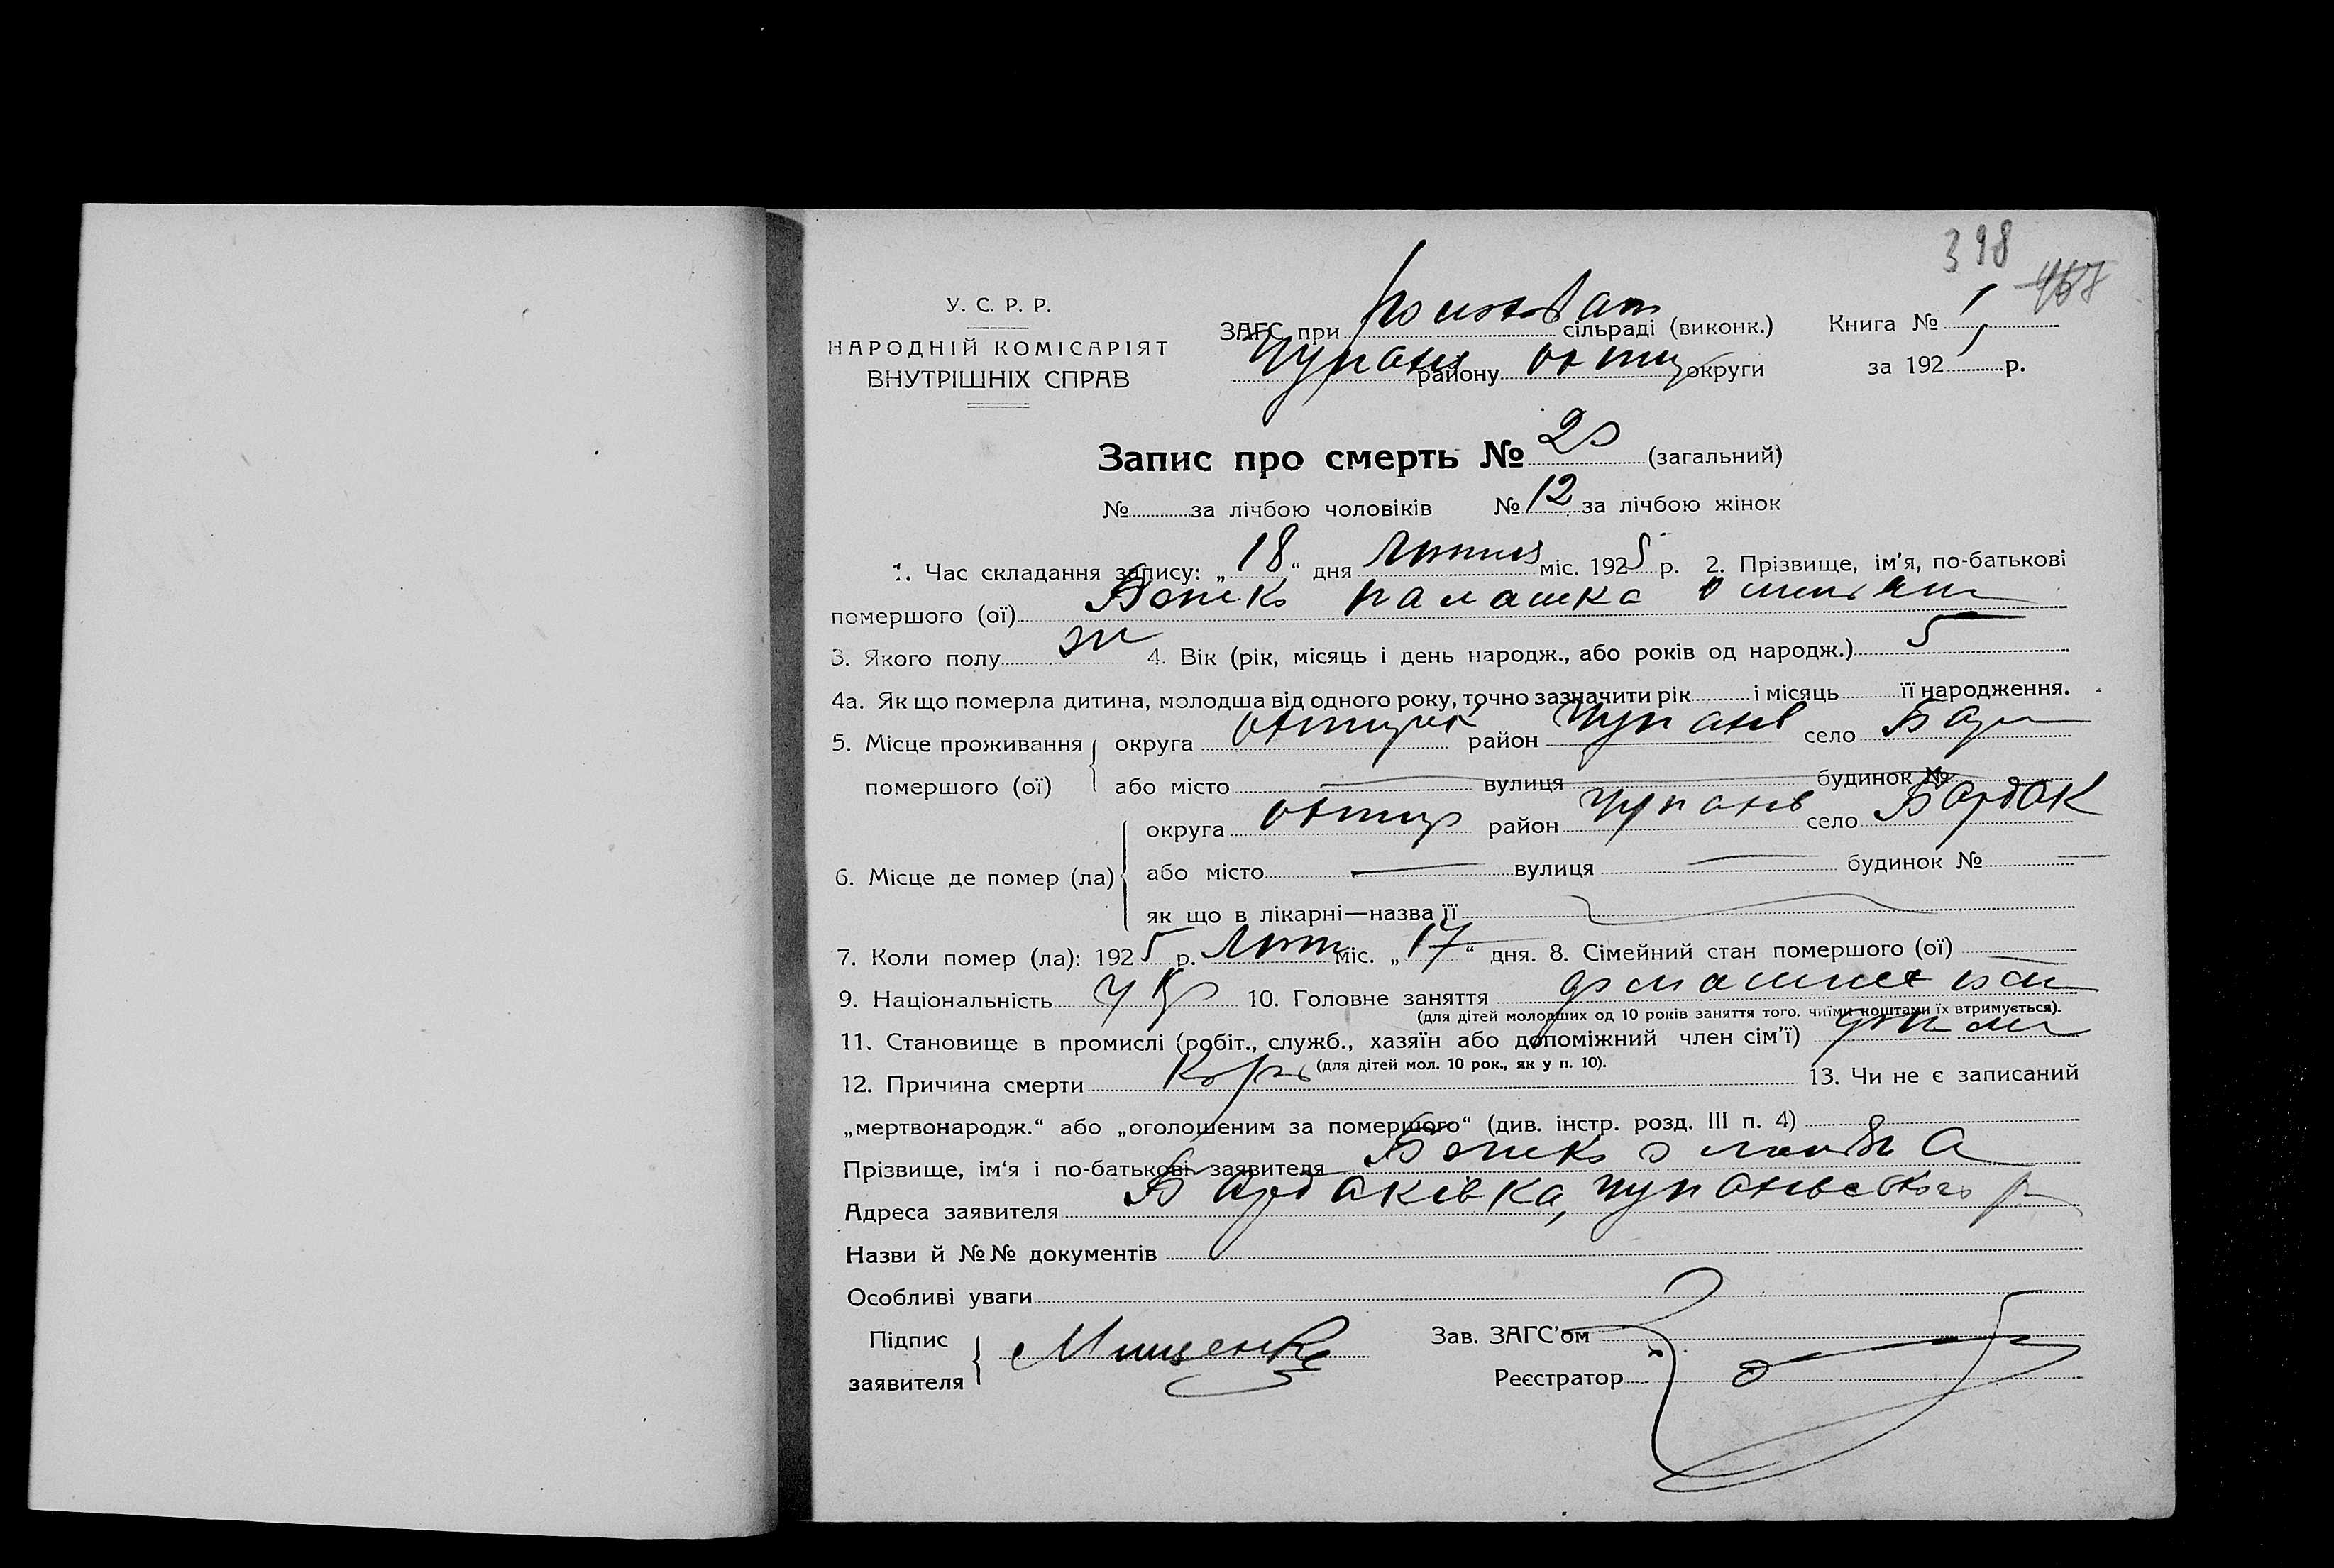 398
467
У. С. Р. Р.
НАРОДНІЙ КОМІСАРІЯТ
ВНУТРІШНІХ СПРАВ
ЗАГС при сільраді (виконк.)
Чупахів району Охтир округи
Книга № 1
за 1925 р.
Запис про смерть № 20 (загальний)
№ за лічбою чоловіків № 12 за лічбою жінок
1. Час складання запису: „18“ дня Лютня міс. 1925 р. 2. Прізвище, ім'я, по-батькові
помершого (ої) палашка
3. Якого полу ж 4. Вік (рік, місяць і день народж., або років од народж.) 5
4а. Як що померла дитина, молодша від одного року, точно зазначити рік і місяць її народження.
5. Місце проживання помершого (ої) округа район село Бар
або місто вулиця будинок №
6. Місце де помер (ла) округа Охтир район село Бардак
або місто вулиця будинок №
як що в лікарні—назва її
7. Коли помер (ла): 1925 р. Лют міс. „17“ дня. 8. Сімейний стан помершого (ої)
9. Національність укр 10. Головне заняття
(для дітей молодших од 10 років заняття того, чиїми коштами їх втримується).
11. Становище в промислі (робіт., служб., хазяїн або допоміжний член сім'ї)
(для дітей мол. 10 рок., як у п. 10).
12. Причина смерти Корь 13. Чи не є записаний
„мертвонародж.“ або „оголошеним за помершого“ (див. інстр. розд. III п. 4)
Прізвище, ім'я і по-батькові заявителя
Адреса заявителя Бардаківка,
Назви й №№ документів
Особливі уваги
Підпис заявителя Мищенко
Зав. ЗАГС'ом
Реєстратор